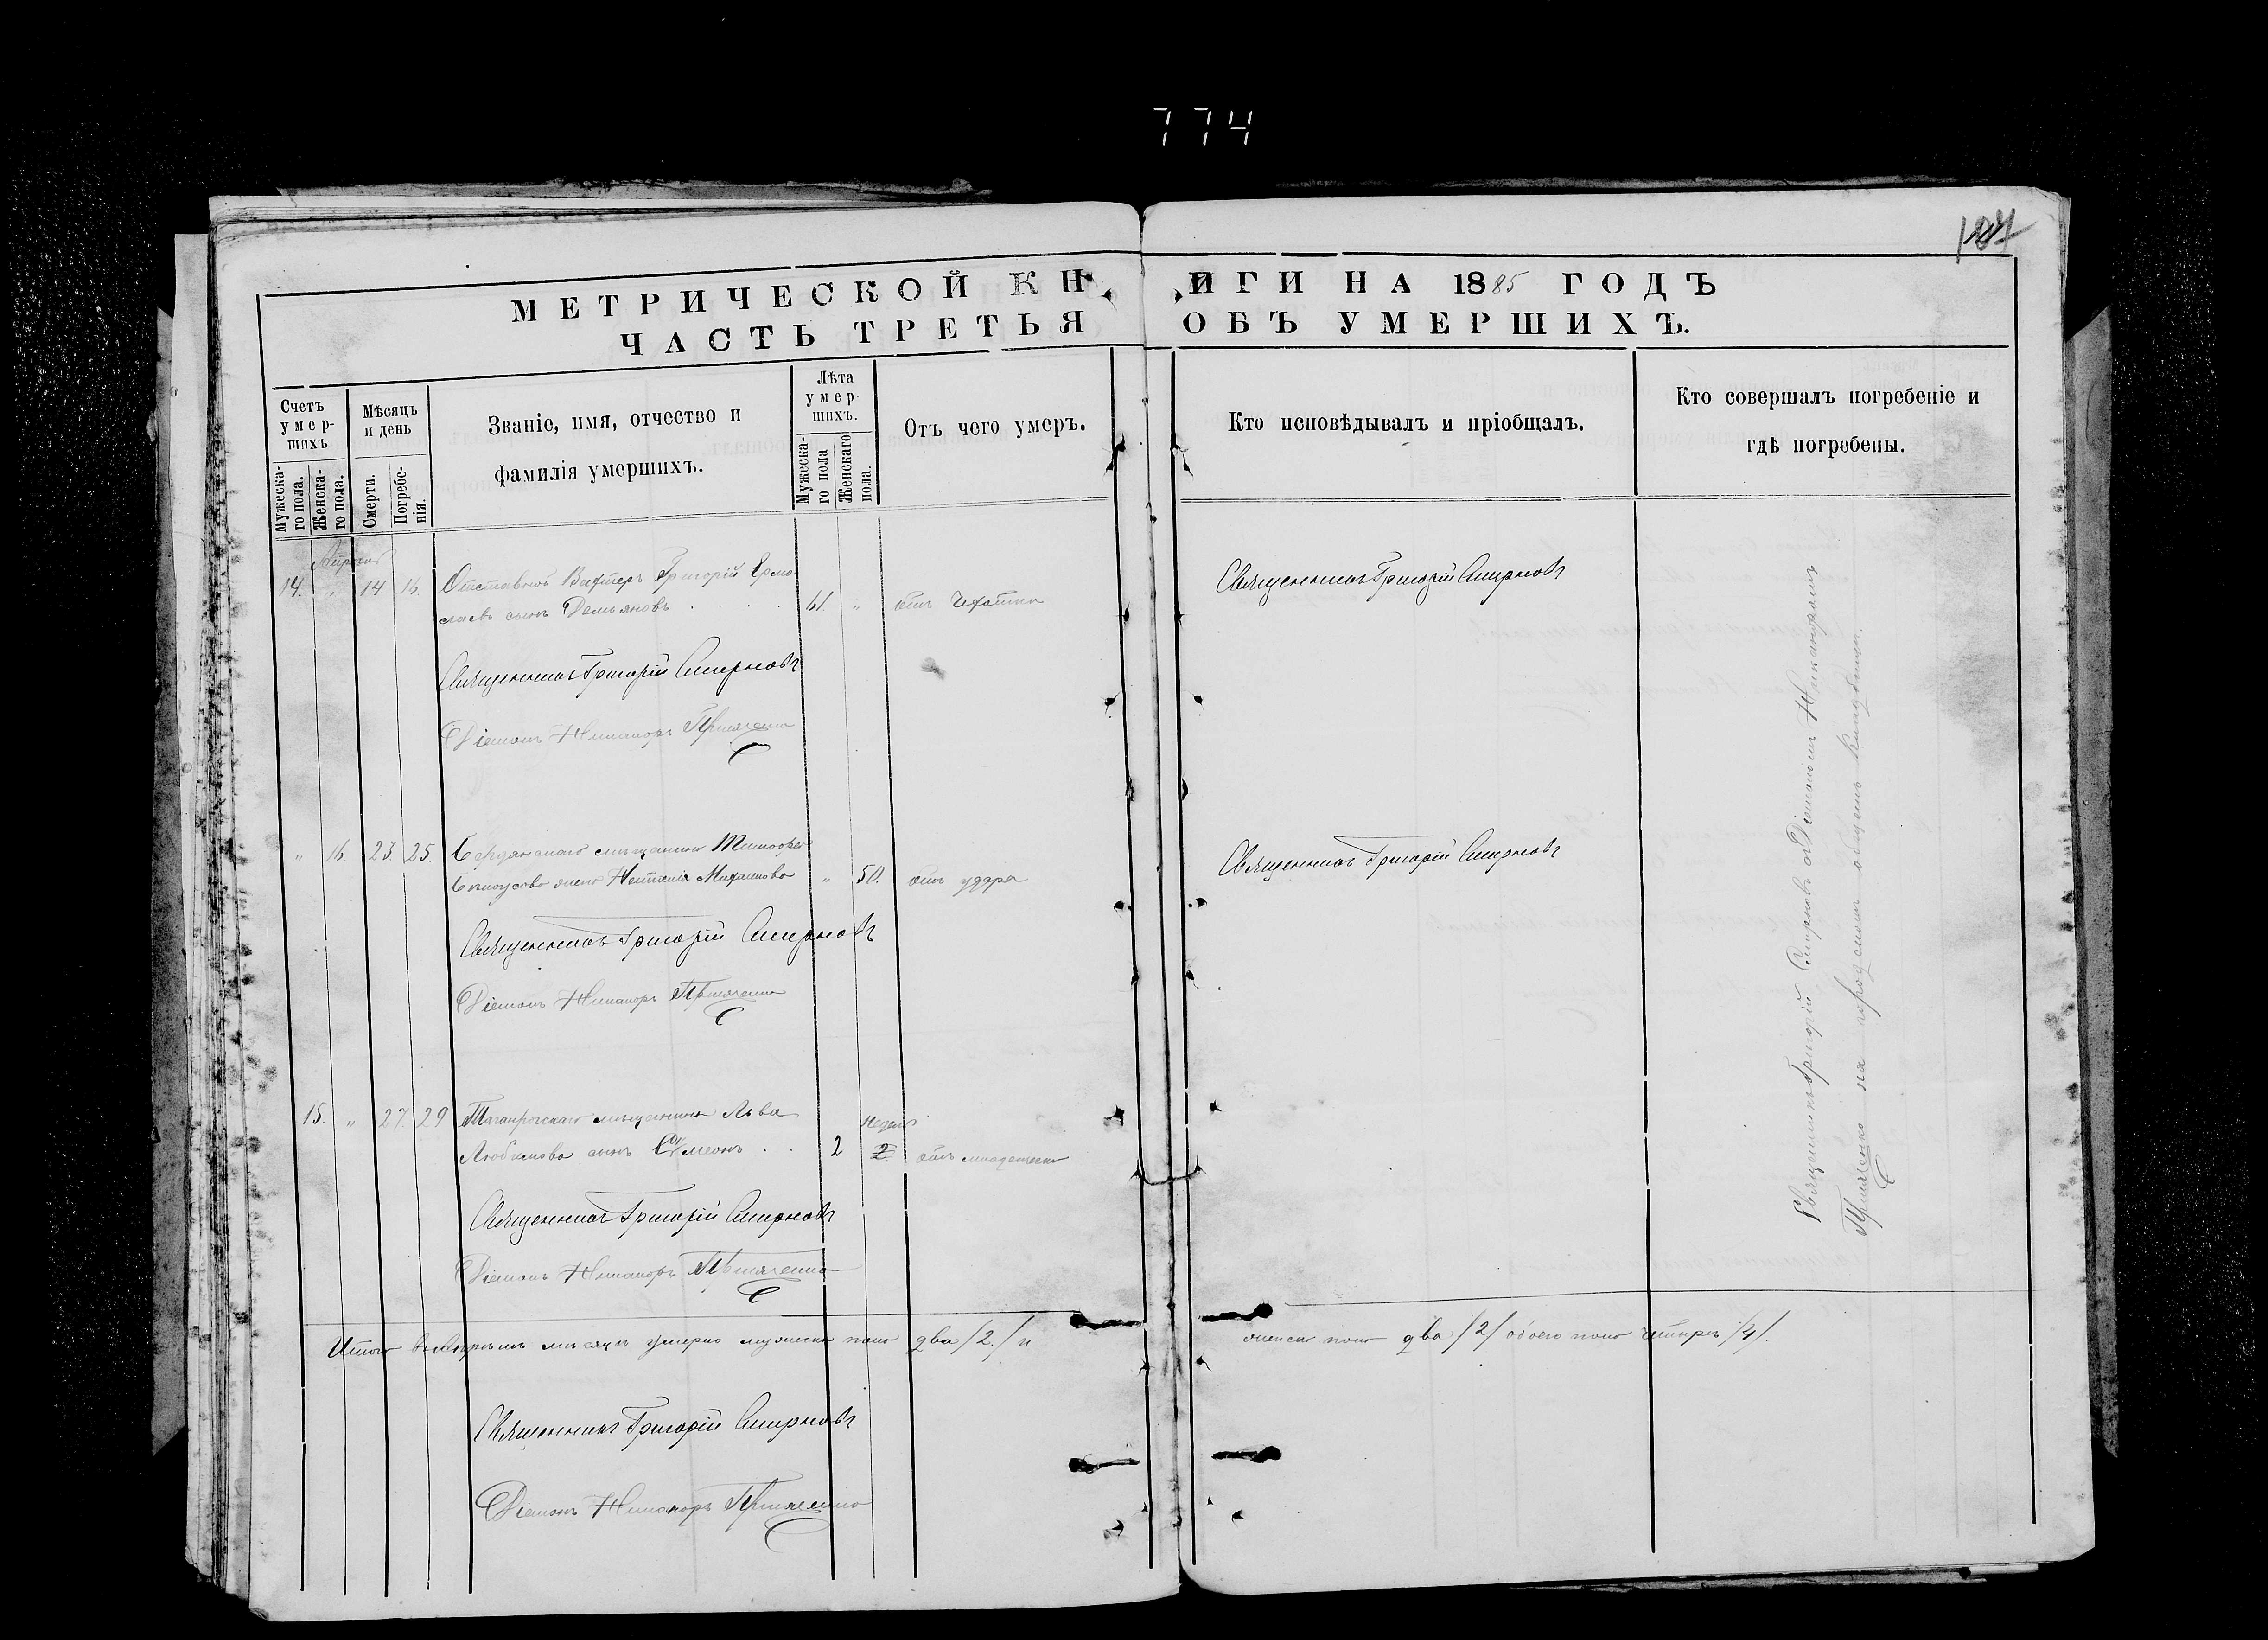 774
107
МЕТРИЧЕСКОЙ КНИГИ НА 1885 ГОДЪ
ЧАСТЬ ТРЕТЬЯ ОБЪ УМЕРШИХЪ.
Счетъ умер-шихъ
Мужеска-го пола.
Женска-го пола.
Мѣсяцъ и день
Смерти.
Погребе-нія.
Званіе, имя, отчество и
фамилія умершихъ.
Лѣта умер-шихъ.
Мужеска-го пола
Женскаго пола.
Отъ чего умеръ.
Кто исповѣдывалъ и пріобщалъ.
Кто совершалъ погребеніе и
гдѣ погребены.
14. " 14 16. Отставной Григорій Ермо
лаевъ сынъ Демьяновъ 61 " отъ Чехотки
Священникъ Григорій Смирновъ
Священникъ Григорій Смирновъ
Діаконъ Никаноръ
" 16. 23. 25. Бердянскаго мѣщанина Тимофея
жена Наталія Михайлова " 50. отъ удара
Священникъ Григорій Смирновъ
Священникъ Григорій Смирновъ
Діаконъ Никаноръ
15. " 27. 29 Таганрогскаго мѣщанина Льва
недѣль
Любимова сынъ Сѵмеонъ 2 2 отъ младенческой
Священникъ Григорій Смирновъ
Діаконъ Никаноръ
Священникъ Григорій Смирновъ съ Діакономъ Никаноромъ
на городскомъ общемъ кладбищѣ
Итого въ Апрѣлѣ мѣсяцѣ умерло мужеска пола два /2/ и
женска пола два /2/ обоего пола четыре /4/.
Священникъ Григорій Смирновъ
Діаконъ Никаноръ